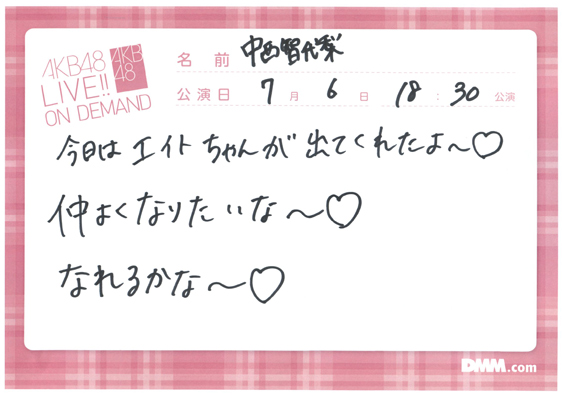 AKB48
LIVE!!
ON DEMAND
AKB
48
名前 中西智代梨
公演日 7月6日 18:30公演
今日はエイトちゃんが出てくれたよ〜♡
仲よくなりたいな〜♡
なれるかな〜♡
DMM.com